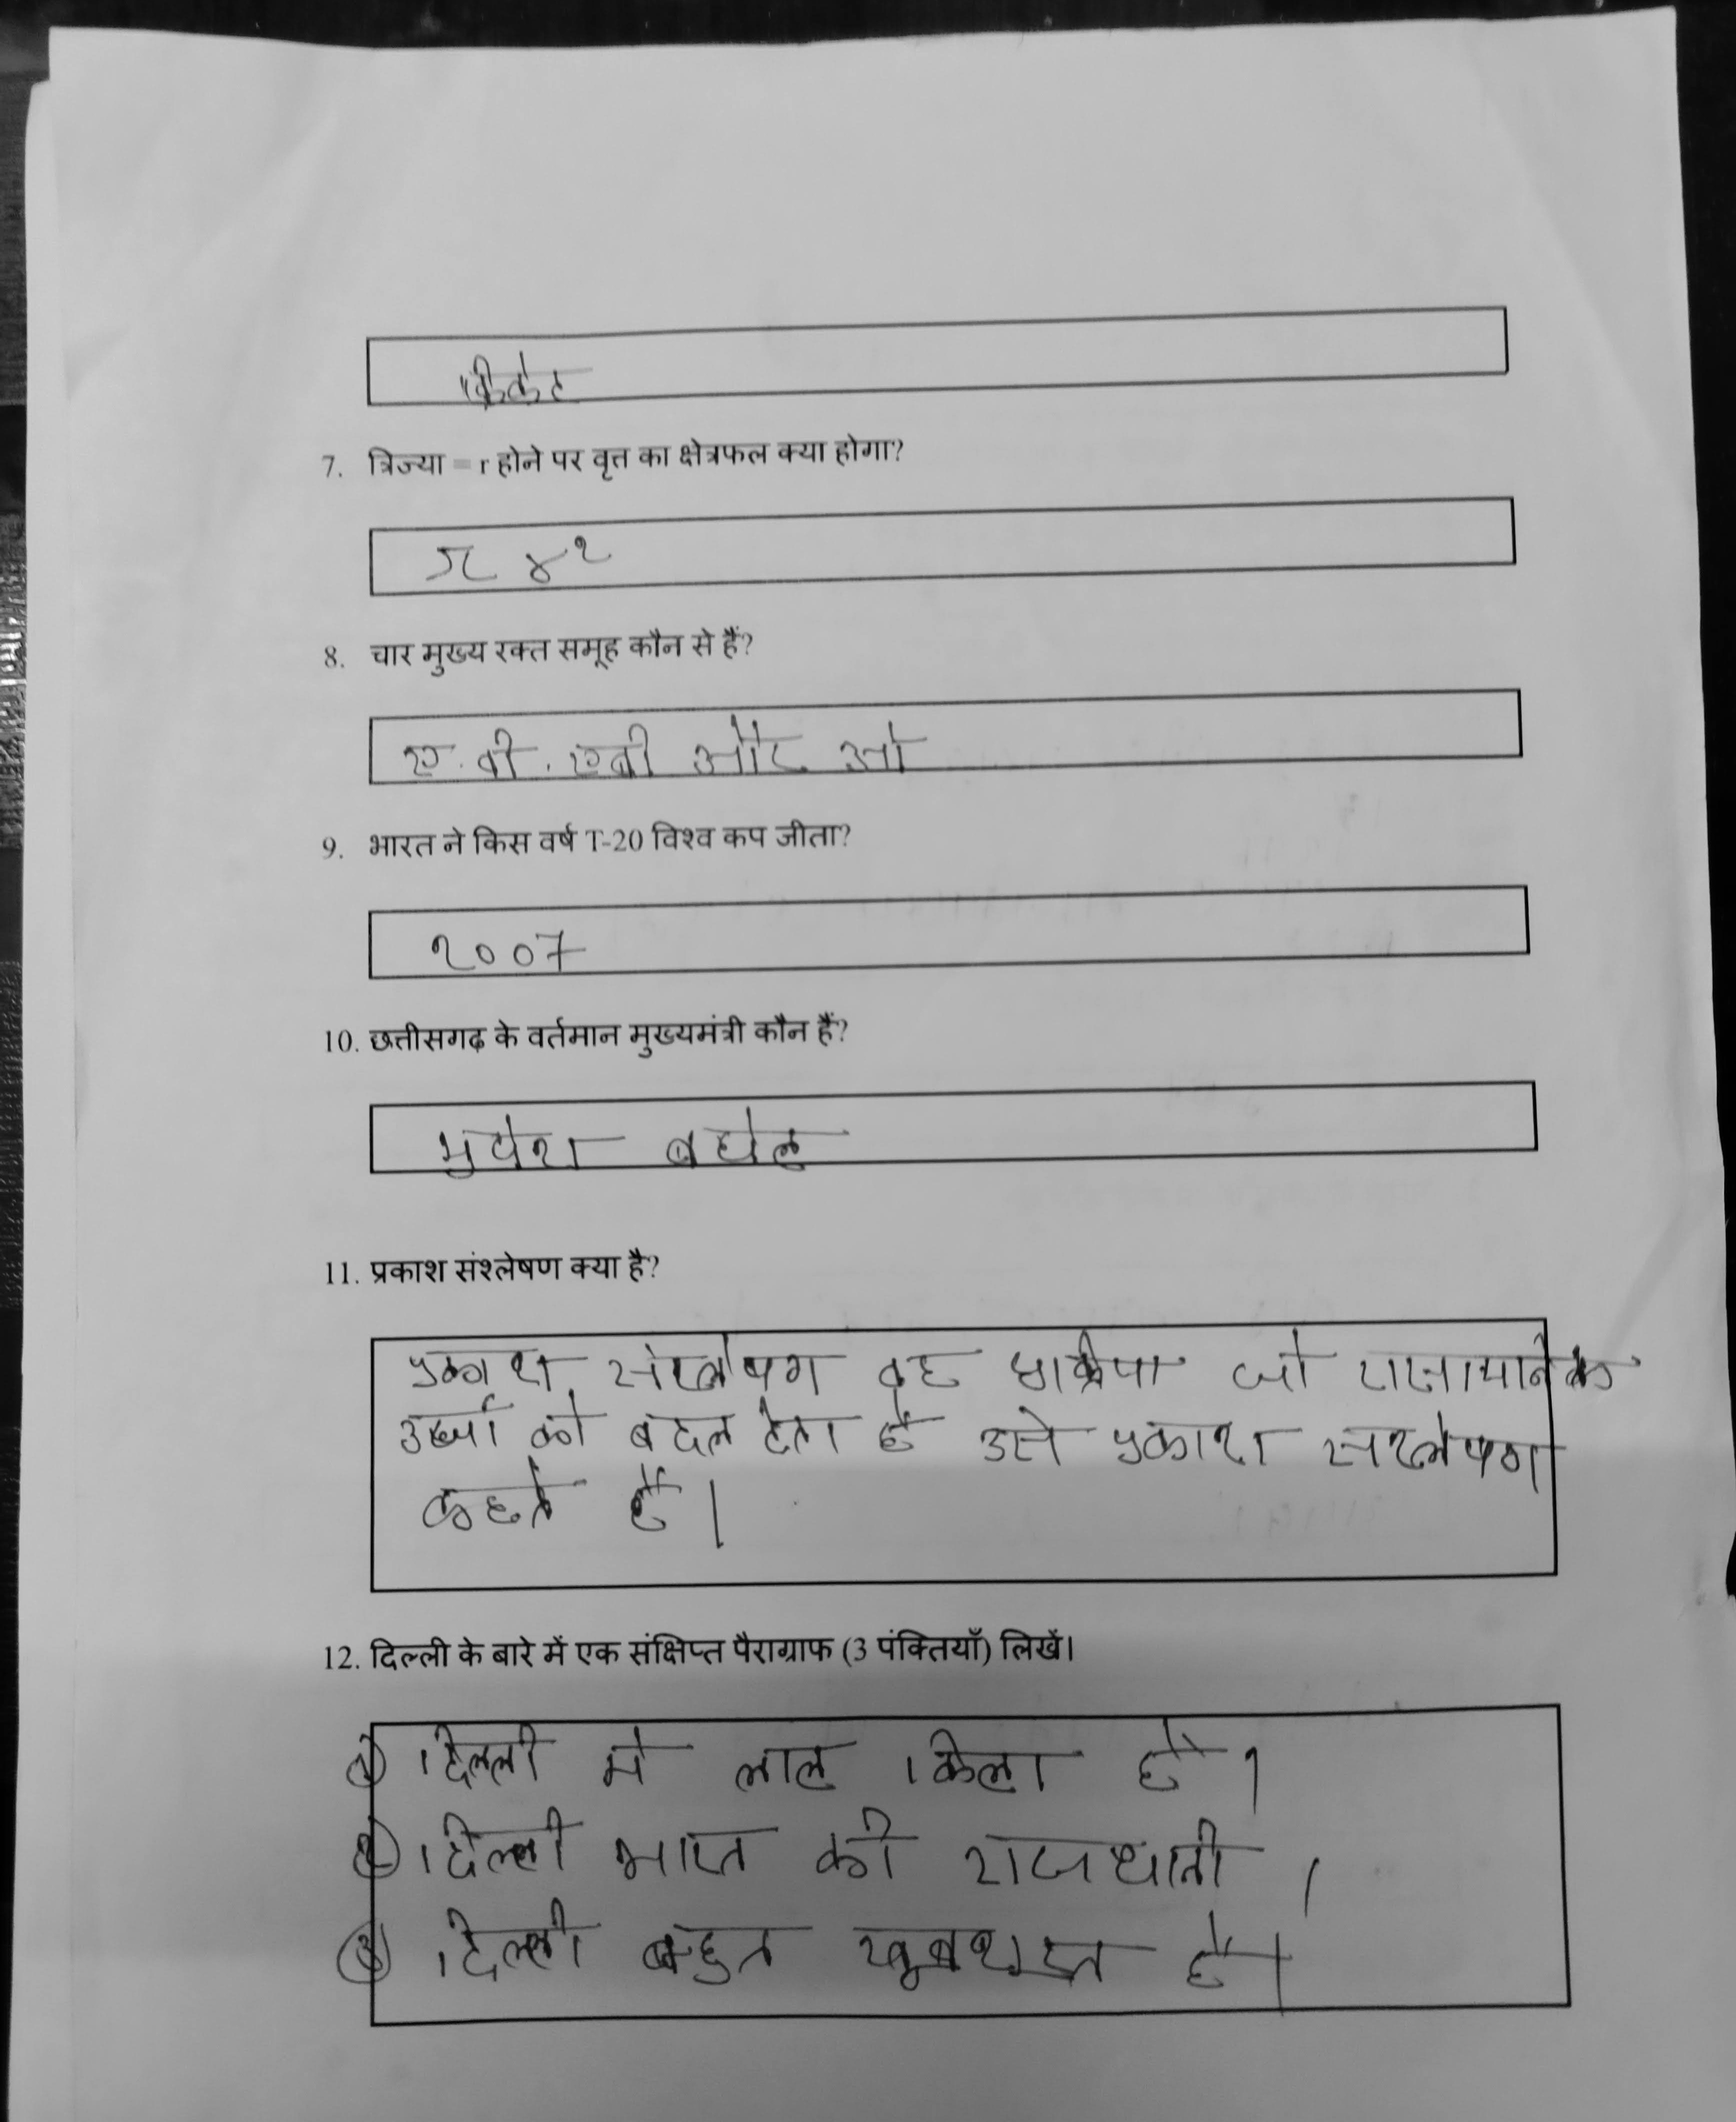 क्रिकेट
7. त्रिज्या = r होने पर वृत्त का क्षेत्रफल क्या होगा?
π r²
8. चार मुख्य रक्त समूह कौन से हैं?
ए. बी. एबी और ओ
9. भारत ने किस वर्ष T-20 विश्व कप जीता?
2007
10. छत्तीसगढ़ के वर्तमान मुख्यमंत्री कौन हैं?
भुपेश बघेल
11. प्रकाश संश्लेषण क्या है?
प्रकाश संश्लेषण वह जो
उर्जा को बदल देता है उसे प्रकाश सश्लेषण
कहते हैं।
12. दिल्ली के बारे में एक संक्षिप्त पैराग्राफ (3 पंक्तियाँ) लिखें।
1) दिल्ली मे लाल किला है।
2) दिल्ली भारत की राजधानी ।
3) दिल्ली बहुत खूबशूरत हैं।